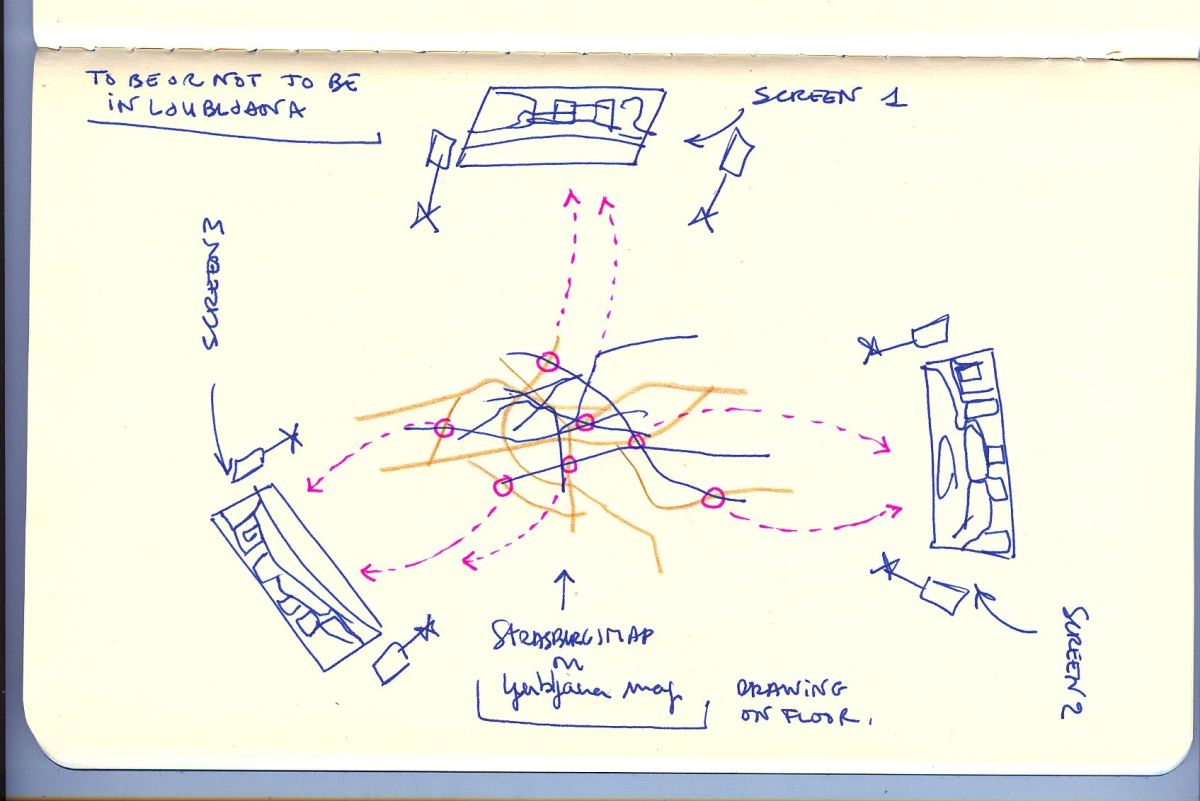 TO BE OR NOT TO BE
IN LOUBLJANA
SCREEN 1
SCREEN 3
SCREEN 2
STRASBURG MAP
on
Ljubljana map
DRAWING
ON FLOOR.